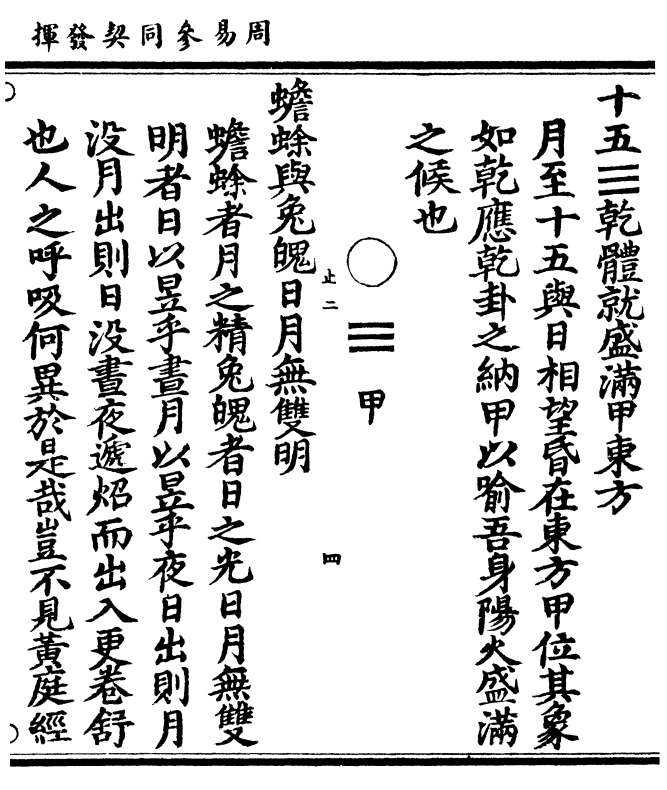 周易參同契發揮
十五☰乾體就盛滿甲東方
月至十五與日相望昏在東方甲位其象
如乾應乾卦之納甲以喻吾身陽火盛滿
之候也
☰
甲
止二
四
蟾蜍與兔魄日月無雙明
蟾蜍者月之精兔魄者日之光日月無雙
明者日以昱乎晝月以昱乎夜日出則月
没月出則日没晝夜遞炤而出入更卷舒
也人之呼吸何異於是哉豈不見黃庭經